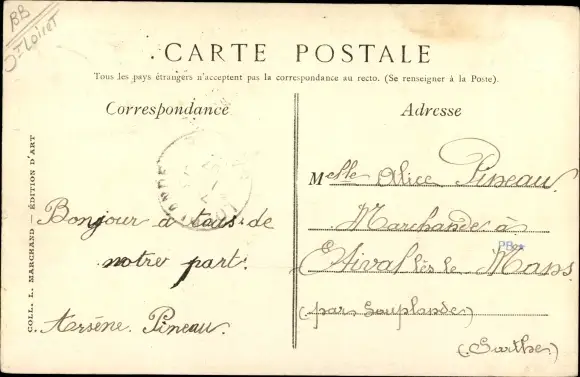 BB
Dt Loiret
CARTE POSTALE
Tous les pays étrangers n'acceptent pas la correspondance au recto. (Se renseigner à la Poste).
Correspondance
Adresse
COLL. L. MARCHAND — ÉDITION D'ART
Bonjour à tous de
notre part.
Arsène. Pineau.
Melle Alice Pineau.
Marchande à
Etival lès le Mans
(par Souplande)
(Sarthe)